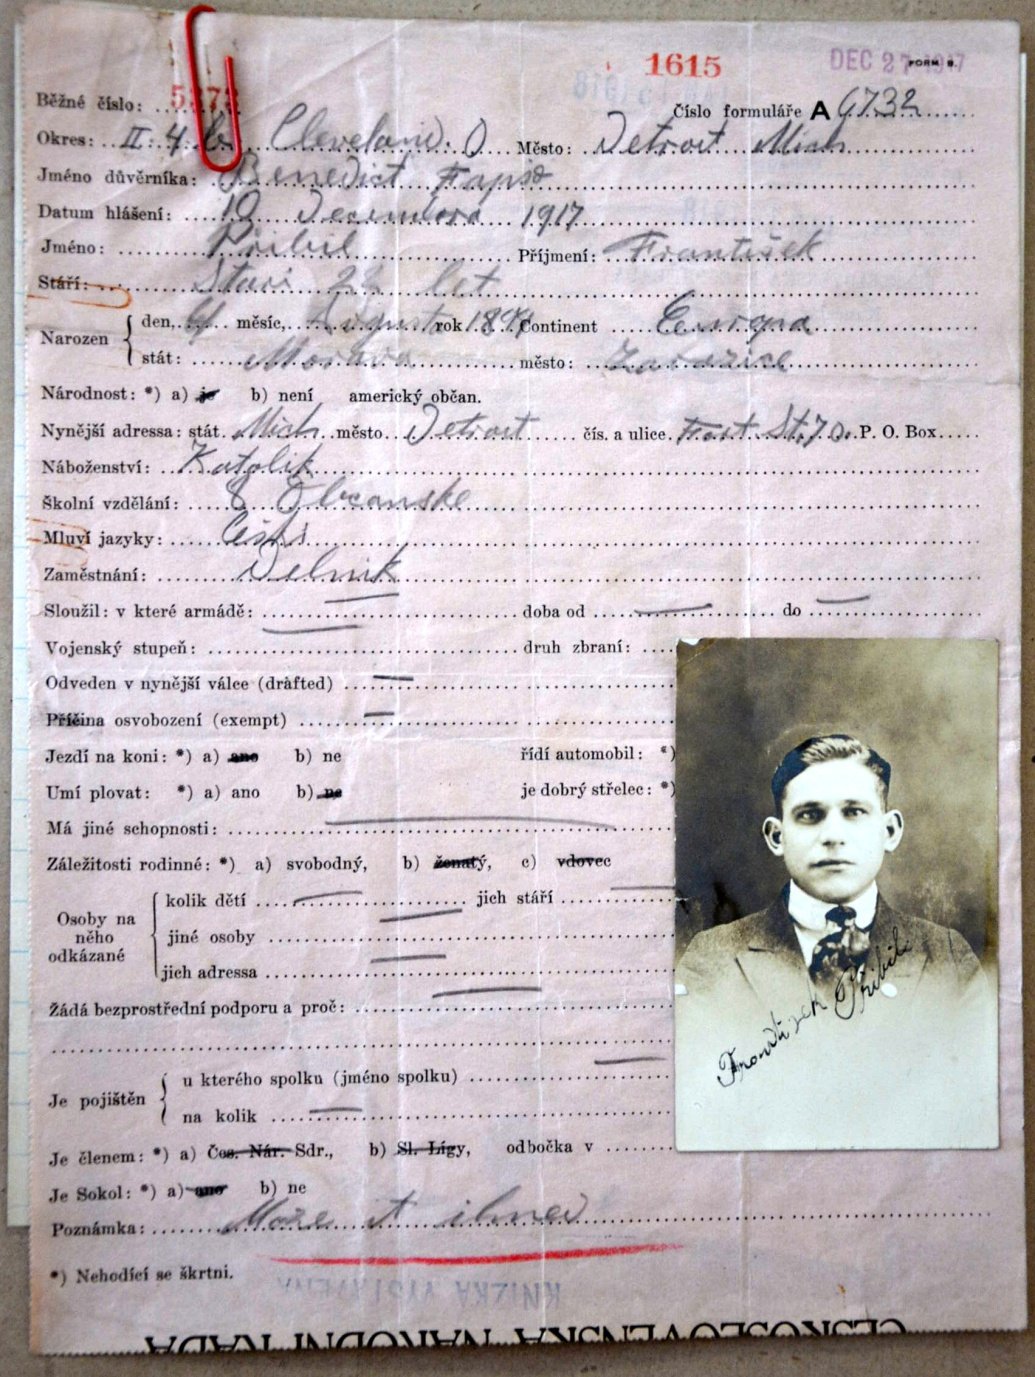 1615
DEC 27 1917
FORM 9.
Běžné číslo: 5 7
Číslo formuláře A 6732
Okres: II. 4. b Cleveland. O Město: Detroit Mich
Jméno důvěrníka: Benedict
Datum hlášení: 10 Decembra 1917
Jméno: Přibil Příjmení: František
Stáří: Stari 22 let
Narozen { den, 4 měsíc, August rok 189 Continent Europa
stát: Morava město:
Národnost: *) a) je b) není americký občan.
Nynější adressa: stát Mich město Detroit čís. a ulice Fort St. 70. P. O. Box
Náboženství: Katolik
Školní vzdělání: 8 Obcanske
Mluví jazyky: Česki
Zaměstnání: Delnik
Sloužil: v které armádě: — doba od — do —
Vojenský stupeň: — druh zbraní:
Odveden v nynější válce (drafted) —
Příčina osvobození (exempt) —
Jezdí na koni: *) a) ano b) ne řídí automobil: *)
Umí plovat: *) a) ano b) ne je dobrý střelec: *)
Má jiné schopnosti: —
Záležitosti rodinné: *) a) svobodný, b) ženatý, c) vdovec
Osoby na něho odkázané { kolik dětí — jich stáří —
jiné osoby —
jich adressa —
Žádá bezprostřední podporu a proč: —
Je pojištěn { u kterého spolku (jméno spolku) —
na kolik —
Je členem: *) a) Čes. Nár. Sdr., b) Sl. Lígy, odbočka v
Je Sokol: *) a) ano b) ne
Poznámka: Može it ihned
*) Nehodící se škrtni.
KNÍŽKA VYSTAVENA
ČESKOSLOVENSKÁ NÁRODNÍ RADA
František Přibil